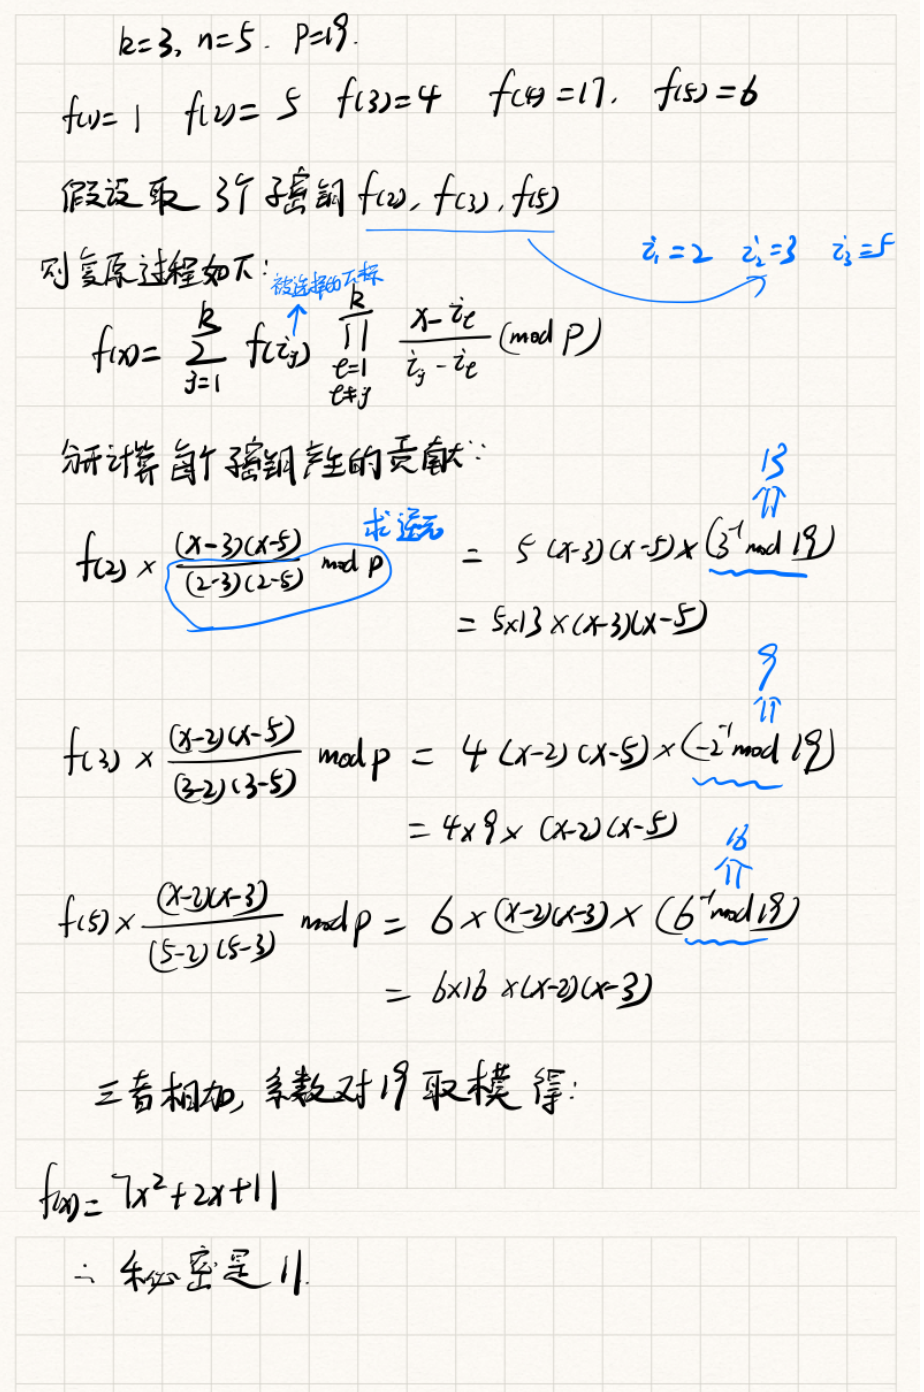 k=3, n=5. P=19.
f(1)=1 f(2)=5 f(3)=4 f(4)=17. f(5)=6
假设取 3个子密钥 f(2), f(3), f(5)
i₁=2 i₂=3 i₃=5
则复原过程如下:
被选择的下标
f(x)= Σ_{j=1}^{k} f(i_j) ∏_{l=1, l≠j}^{k} (x-i_l)/(i_j-i_l) (mod P)
分开计算每个子密钥产生的贡献:
13
求逆元
f(2) × (x-3)(x-5)/(2-3)(2-5) mod p = 5(x-3)(x-5)×(3⁻¹ mod 19)
= 5×13×(x-3)(x-5)
9
f(3) × (x-2)(x-5)/(3-2)(3-5) mod p = 4(x-2)(x-5)×(-2⁻¹ mod 19)
= 4×9×(x-2)(x-5)
16
f(5) × (x-2)(x-3)/(5-2)(5-3) mod p = 6×(x-2)(x-3)×(6⁻¹ mod 19)
= 6×16×(x-2)(x-3)
三者相加, 系数对19取模得:
f(x)= 7x²+2x+11
∴ 秘密是11.